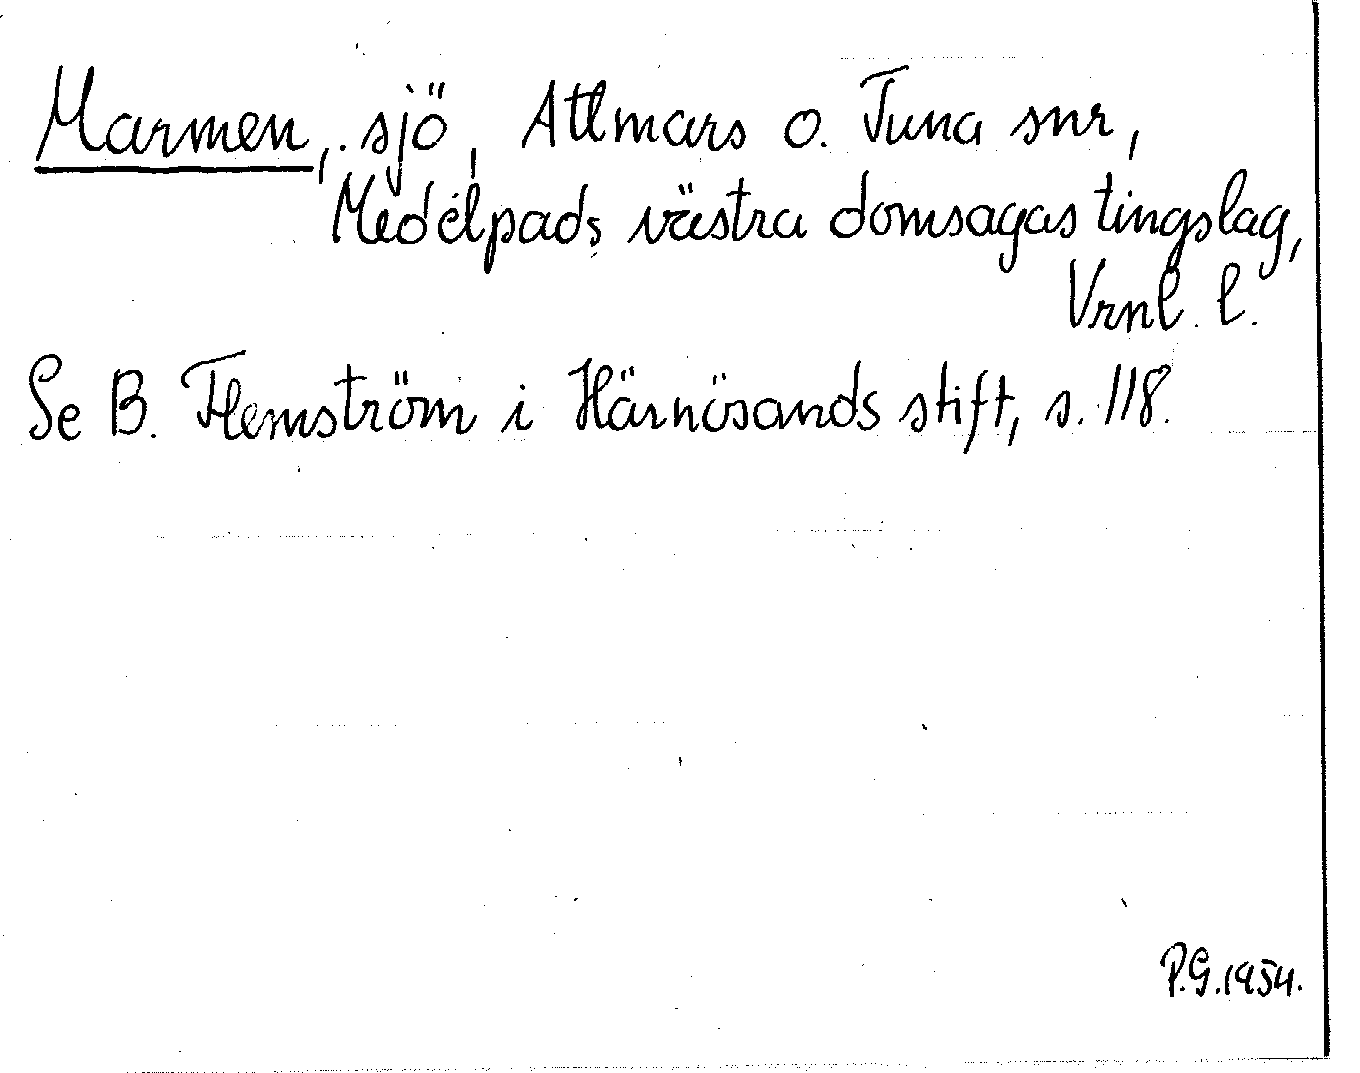 Marmen, sjö, Attmars o. Tuna snr,
Medelpads västra domsagas tingslag,
Vrnl. l.
Se B. Flemström i Härnösands stift, s. 118.
P.G. 1954.